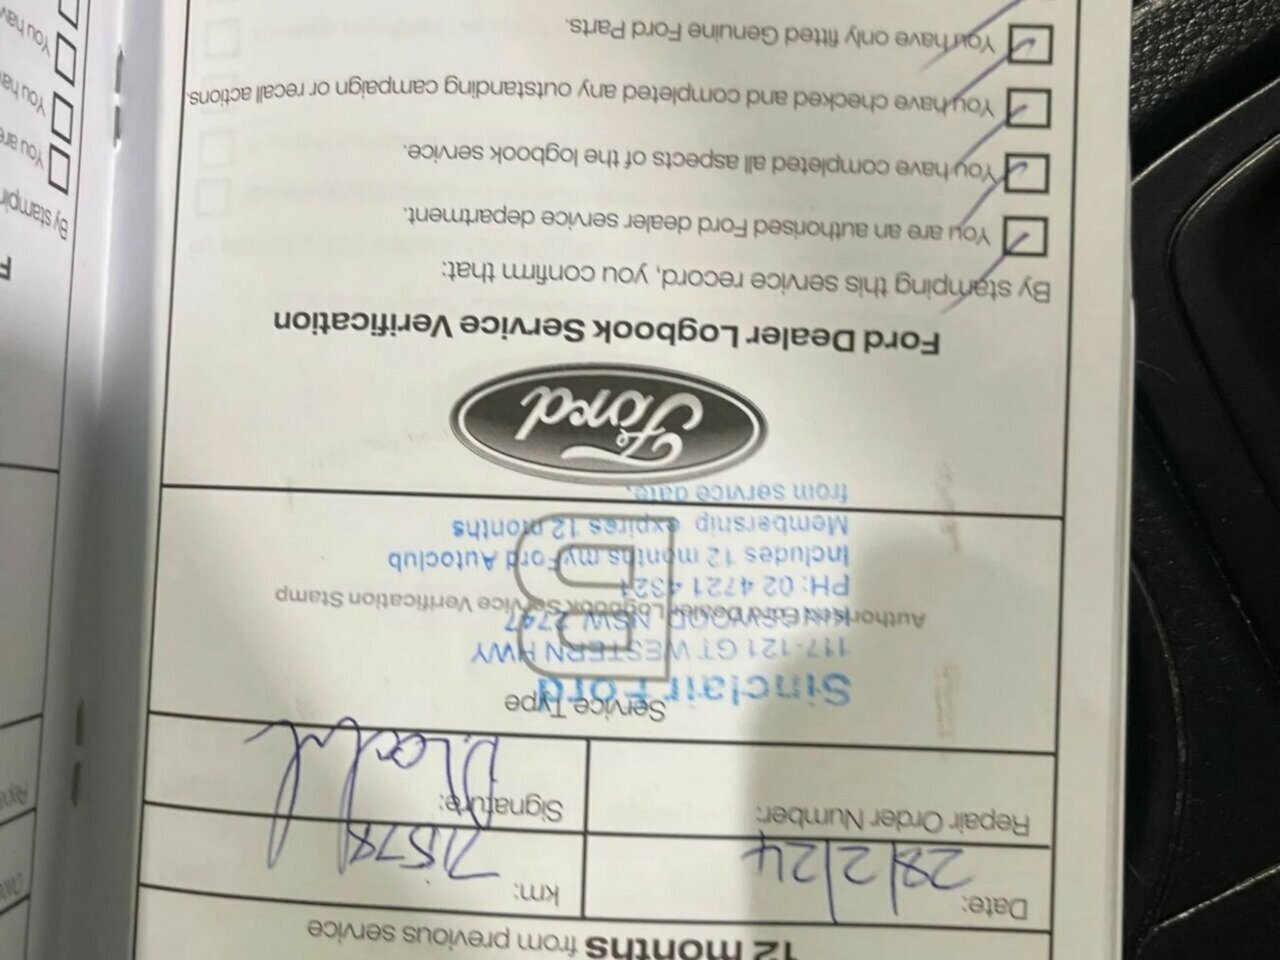 12 months from previous service
Date: 28/2/24
km:
Repair Order Number:
Signature:
Service Type
Sinclair Ford
117-121 GT WESTERN HWY
KINGSWOOD, NSW 2747
Authorised Ford Dealer Logbook Service Verification Stamp
PH: 02 4721 4321
Includes 12 months myFord Autoclub
Membership expires 12 months
from service date.
Ford
Ford Dealer Logbook Service Verification
By stamping this service record, you confirm that:
You are an authorised Ford dealer service department.
You have completed all aspects of the logbook service.
You have checked and completed any outstanding campaign or recall actions.
You have only fitted Genuine Ford Parts.
F
By stampin
You are
You ha
You hav